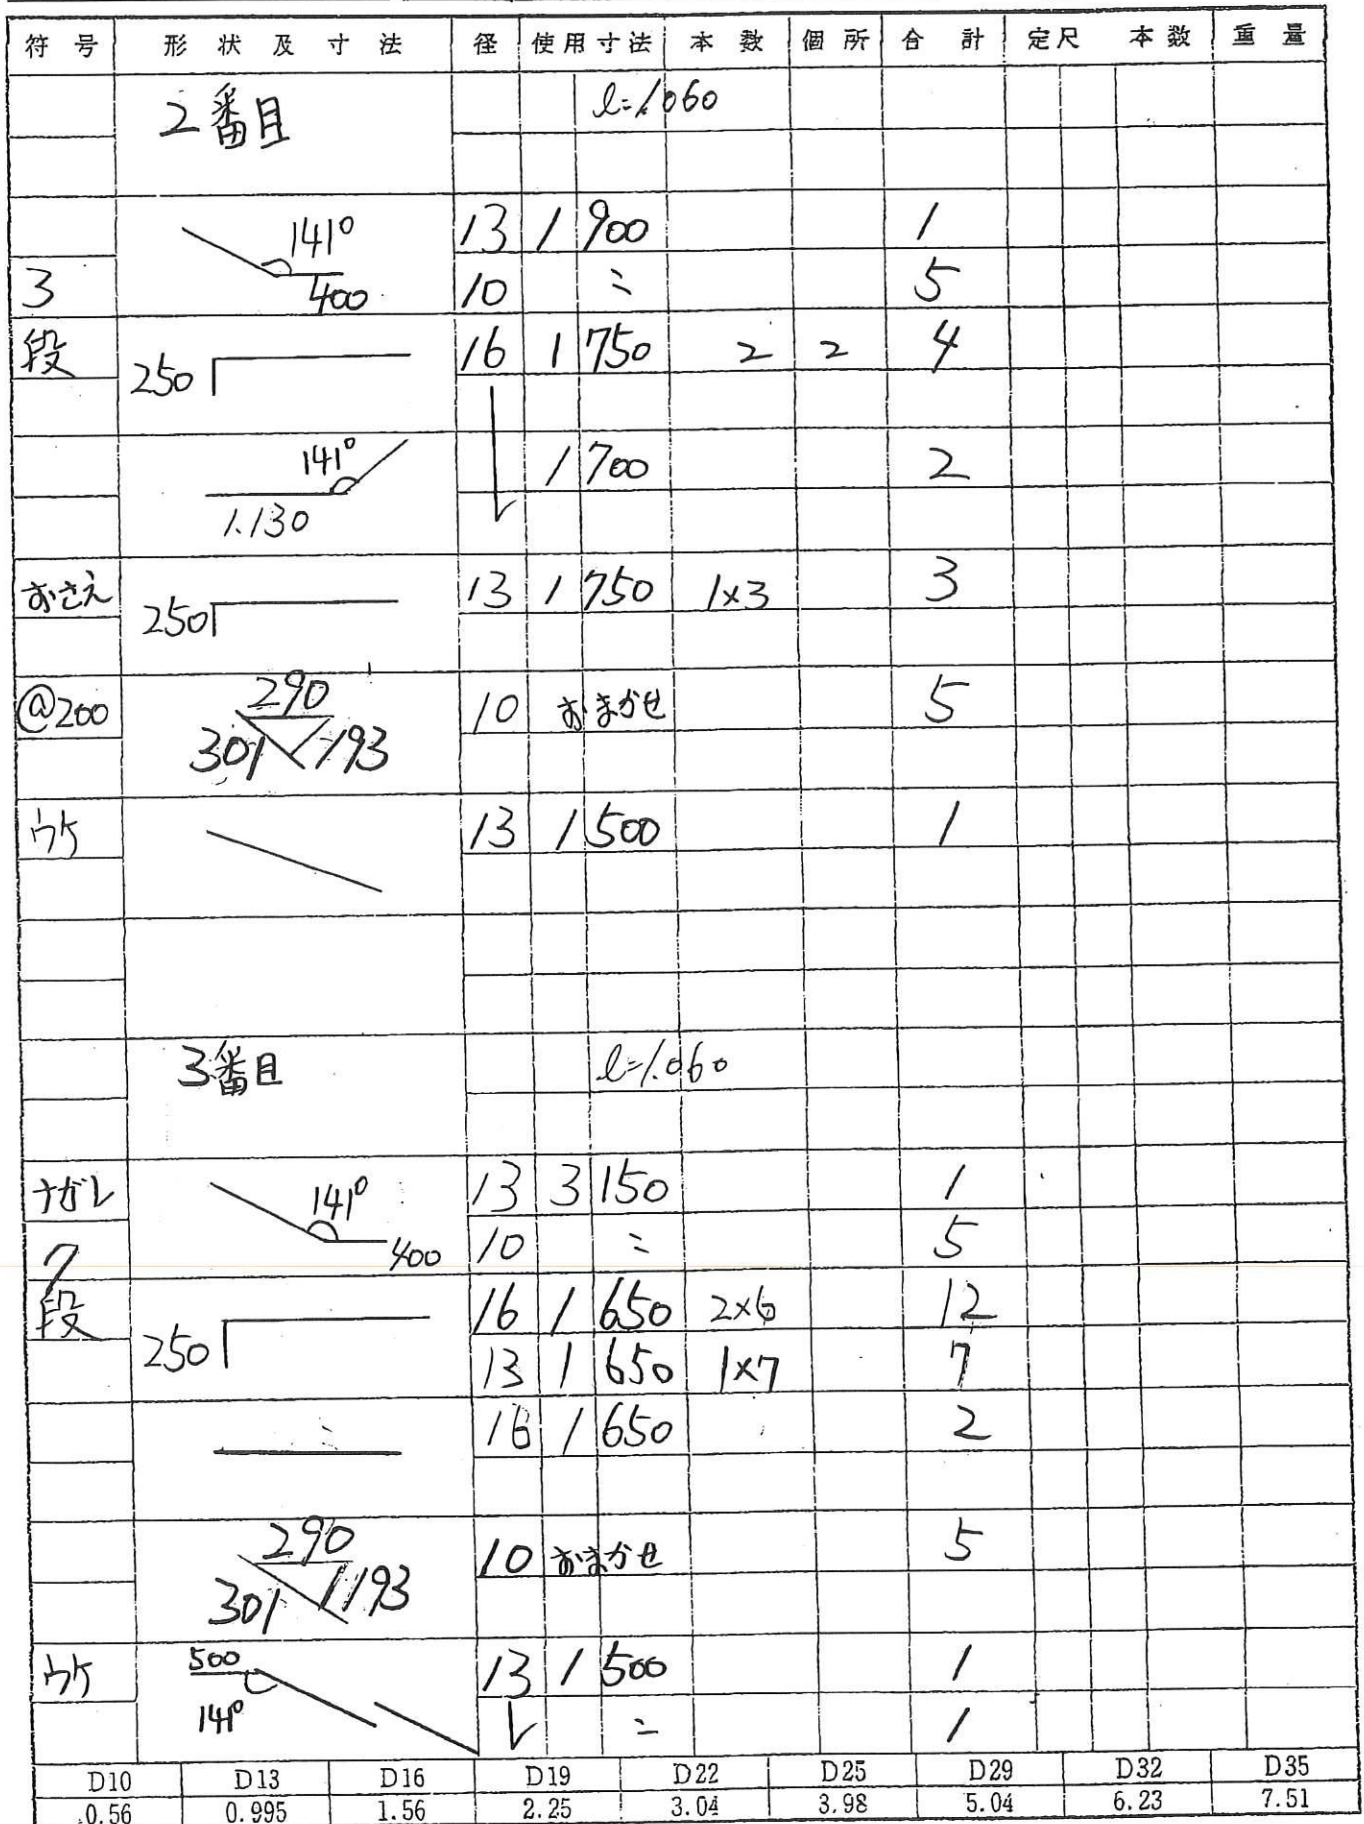 符号 形状及寸法 径 使用寸法 本数 個所 合計 定尺 本数 重量
2番目 l=1.060
141° 400 13 1 900 1
3 10 〃 5
段 250 16 1 750 2 2 4
141° 1.130 1 700 2
おさえ 250 13 1 750 1×3 3
@200 290 301 193 10 おまかせ 5
ウケ 13 1 500 1
3番目 l=1.060
ナガレ 141° 400 13 3 150 1
7 10 〃 5
段 250 16 1 650 2×6 12
13 1 650 1×7 7
16 1 650 2
290 301 193 10 おまかせ 5
ウケ 500 141° 13 1 500 1
〃 1
D10 D13 D16 D19 D22 D25 D29 D32 D35
0.56 0.995 1.56 2.25 3.04 3.98 5.04 6.23 7.51